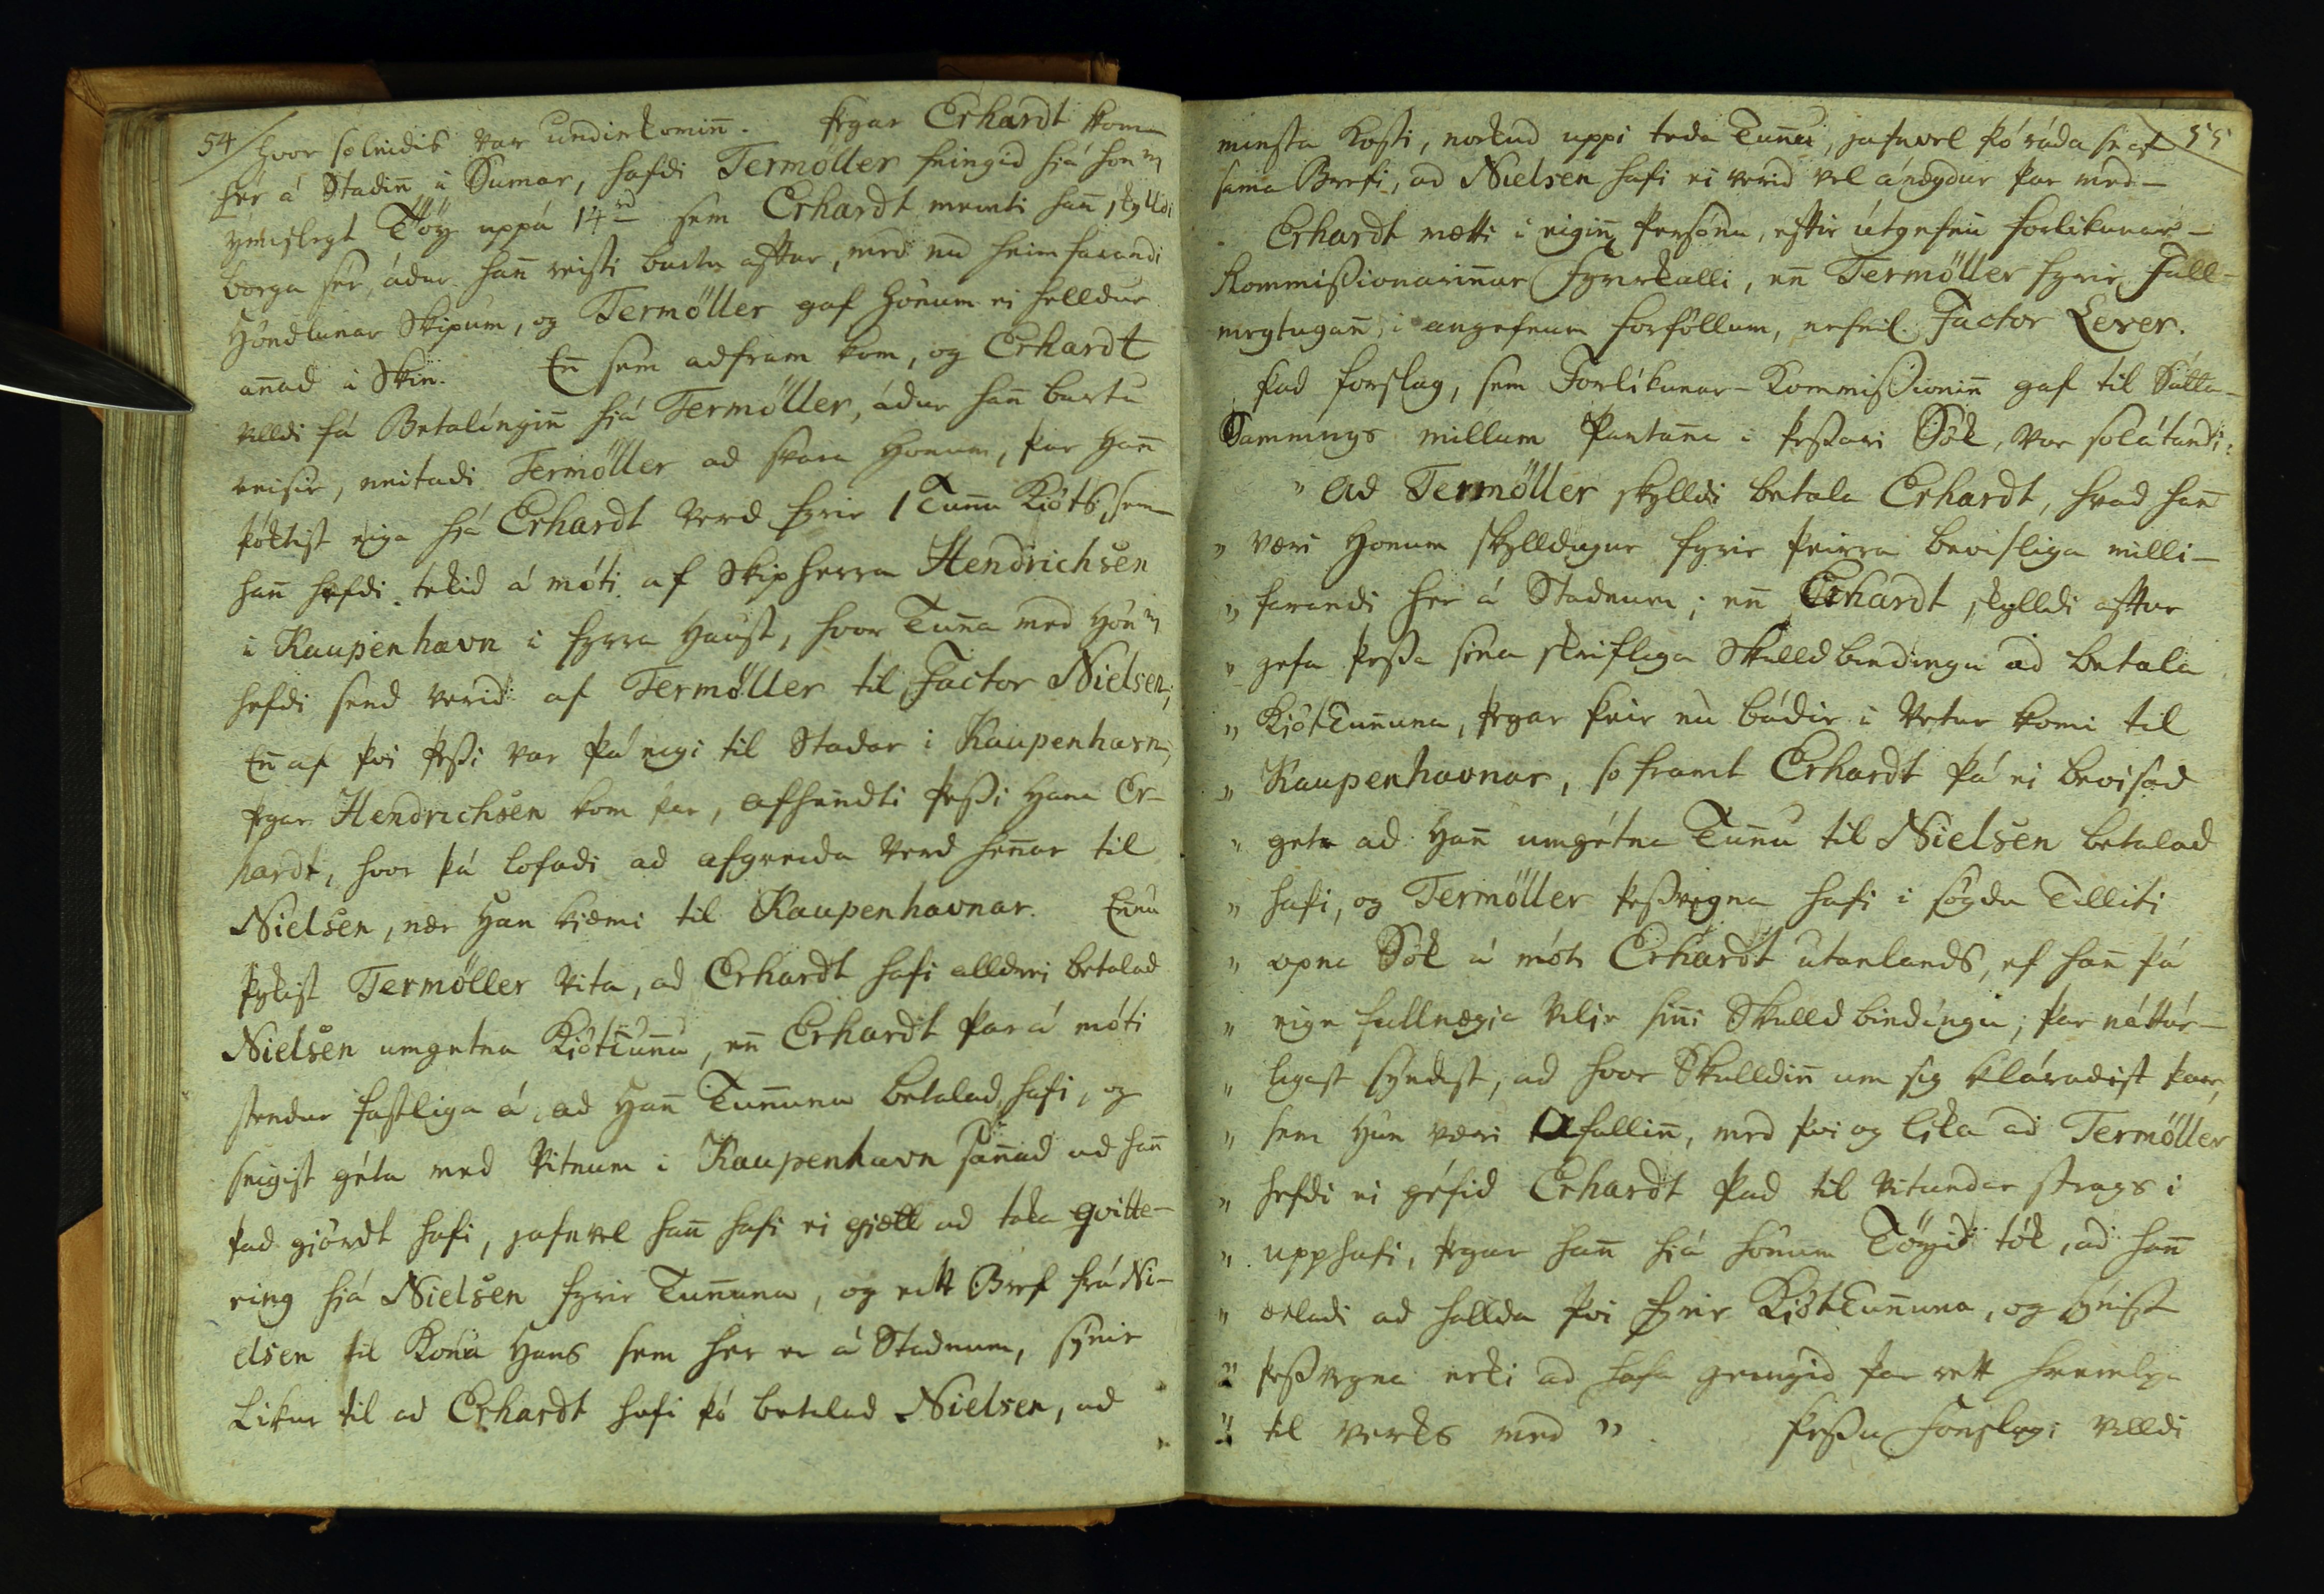 54
hvor soleidis var undirkominn. Þegar Erhardt kom
hér á Stadinn í Sumar, hafdi Termøller feingid hjá honm
ymislegt Töÿ uppá 14 rd sem Erhardt meinti hann skylldi
borga sér, ádur hann reisti burtu aftur, med nú heimfarandi
Höndlunar Skipum, og Termöller gaf Hönum ei helldur
annad í Skin. Enn sem adfram kom, og Erhardt
villdi fá Betalíngin hjá Termøller, ádur hann burtu
reisir, neitadi Termøller ad svara Honum, þar Hann
þóktist eiga hjá Erhardt Verd fyrir 1 Tunnu Kjöts, sem
hann hefdi tekid á móti af Skipherra Hendrichsen
i Kaupenhavn i fyrra Haust, hvor Tunna med Hönm
hefdi send verid af Termøller til Factor Nielsen;
Enn af þvi þessi var þá eigi til Stadar i Kaupenhavn,
þegar Hendrichsen kom þar, afhendti þessi Hana Er-
hardt, hvor þá lofadi ad afgreida Verd hennar til
Nielsen, nær Han kjæmi til Kaupenhavnar. Ennú
þykist Termøller vita, ad Erhardt hafi alldrei betalad
Nielsen umgetna Kjöttunnu, enn Erhardt þar á móti
stendur fastliga á, ad Hann Tunnuna betalad hafi, og
seigist géta med Vitnum i Kaupenhavn sannad ad hann
þad gjördt hafi, jafnvel hann hafi ei gjætt ad taka qvitte-
ring hjá Nielsen fyrir Tunnuna, og eitt Bref frá Ni-
elsen til Konu Hans sem her er á Stadnum, sýnir
Likur til ad Erhardt hafi þó betalad Nielsen, ad
55
minsta kosti, nockud uppi teda Tunnu, jafnvel þó ráda sé af
sama Brefi, ad Nielsen hafi ei verid vel ánægdur þar med-
Erhardt mætti i eiginn Persónu, eftir útgefnu Forlikunar-
Kommissionarinnar Fyrirkalli, enn Termöller fyrir Full-
megtugann, i angefnum Forföllum, nefnil. Factor Lever.
Þad Forslag, sem Forlíkunar-Kommissioninn gaf til Sátta-
Samnings millum Partanna i þessari Sök, var solátandi:
" Ad Termøller skylldi betala Erhardt, hvad hann
" væri Honum skylldugur fyrir þeirra bevisliga milli-
" farandi her á Stadnum; enn Erhardt skylldi aftur
" gefa þessa sina skrifliga Skulldbindingu ad betala
" KjötTunnuna, þegar þeir nú bádir i Vetur komi til
" Kaupenhavnar, so framt Erhardt þá ei bevisad
" getr ad Hann umgétna Tunnu til Nielsen betalad
" hafi, og Termøller þessvegna hafi i sögdu Tilliti
" opna Sök á móti Erhardt utanlands, ef hann þá
" eige fullnægia vilie sinni Skulldbindíngu; þar náttúr-
" ligast syndist, ad hvor Skulldinn um sig kláradist þar,
" sem Hún væri Afallinn, med þvi og lika ad Termøller
" hefdi ei géfid Erhardt þad til Vitundar strags i
" upphafi, þegar hann hjá hönum Töÿid tók, ad hann
" ætladi ad hallda þvi fyrir KjötTunnuna, og sýnist
" þessvegna ecki ad hafa geingid þar rett hreinlega
" til verks med ". Þessu Forslagi villdi